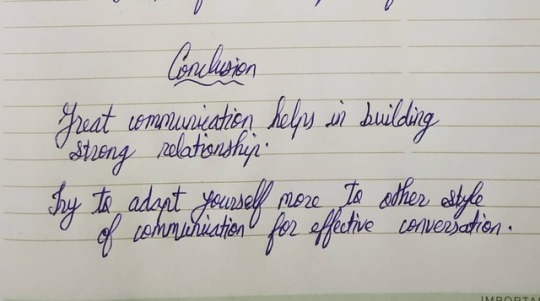 Conclusion
Great communication helps in building
strong relationship.
Try to adapt yourself more to other style
of communication for effective conversation.